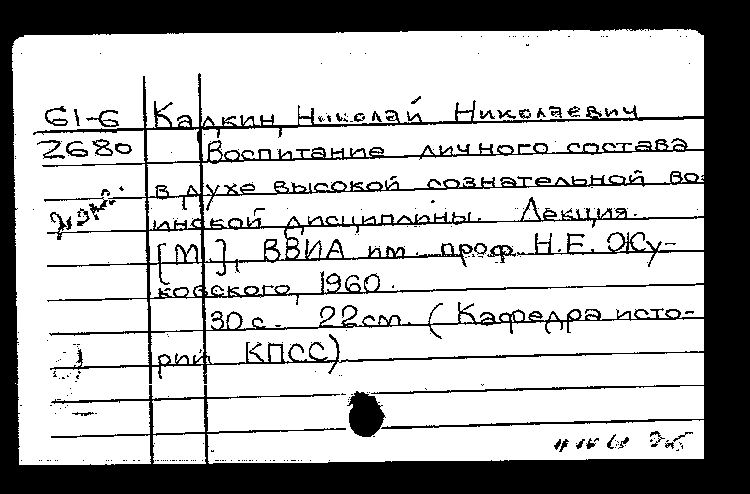 61-6 Калкин, Николай Николаевич
2680 Воспитание личного состава
в духе высокой сознательной во-
инской дисциплины. Лекция.
[М.], ВВИА им. проф. Н.Е. Жу-
ковского, 1960.
30 с. 22 см. (Кафедра исто-
рии КПСС)